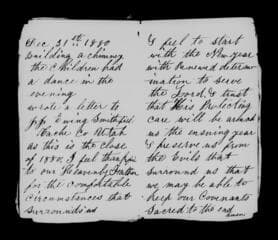 Dec, 31st 1880
building a chimney
the Children had
a dance in the
evening
wrote a letter to
Ewing Smithfield
Cache Co Utah
as this is the close
of 1880 I feel
to our Heavenly Father
for the comfortable
Circumstances that
Surrounds us
I feel to start
with the New year
with Renewed determ
ination to serve
the Lord, & trust
that His Protecting
care will be around
us the ensuing year
& preserve us from
the Evils that
Surround us that
we may be able to
Keep our Covenants
Sacred to the end
amen